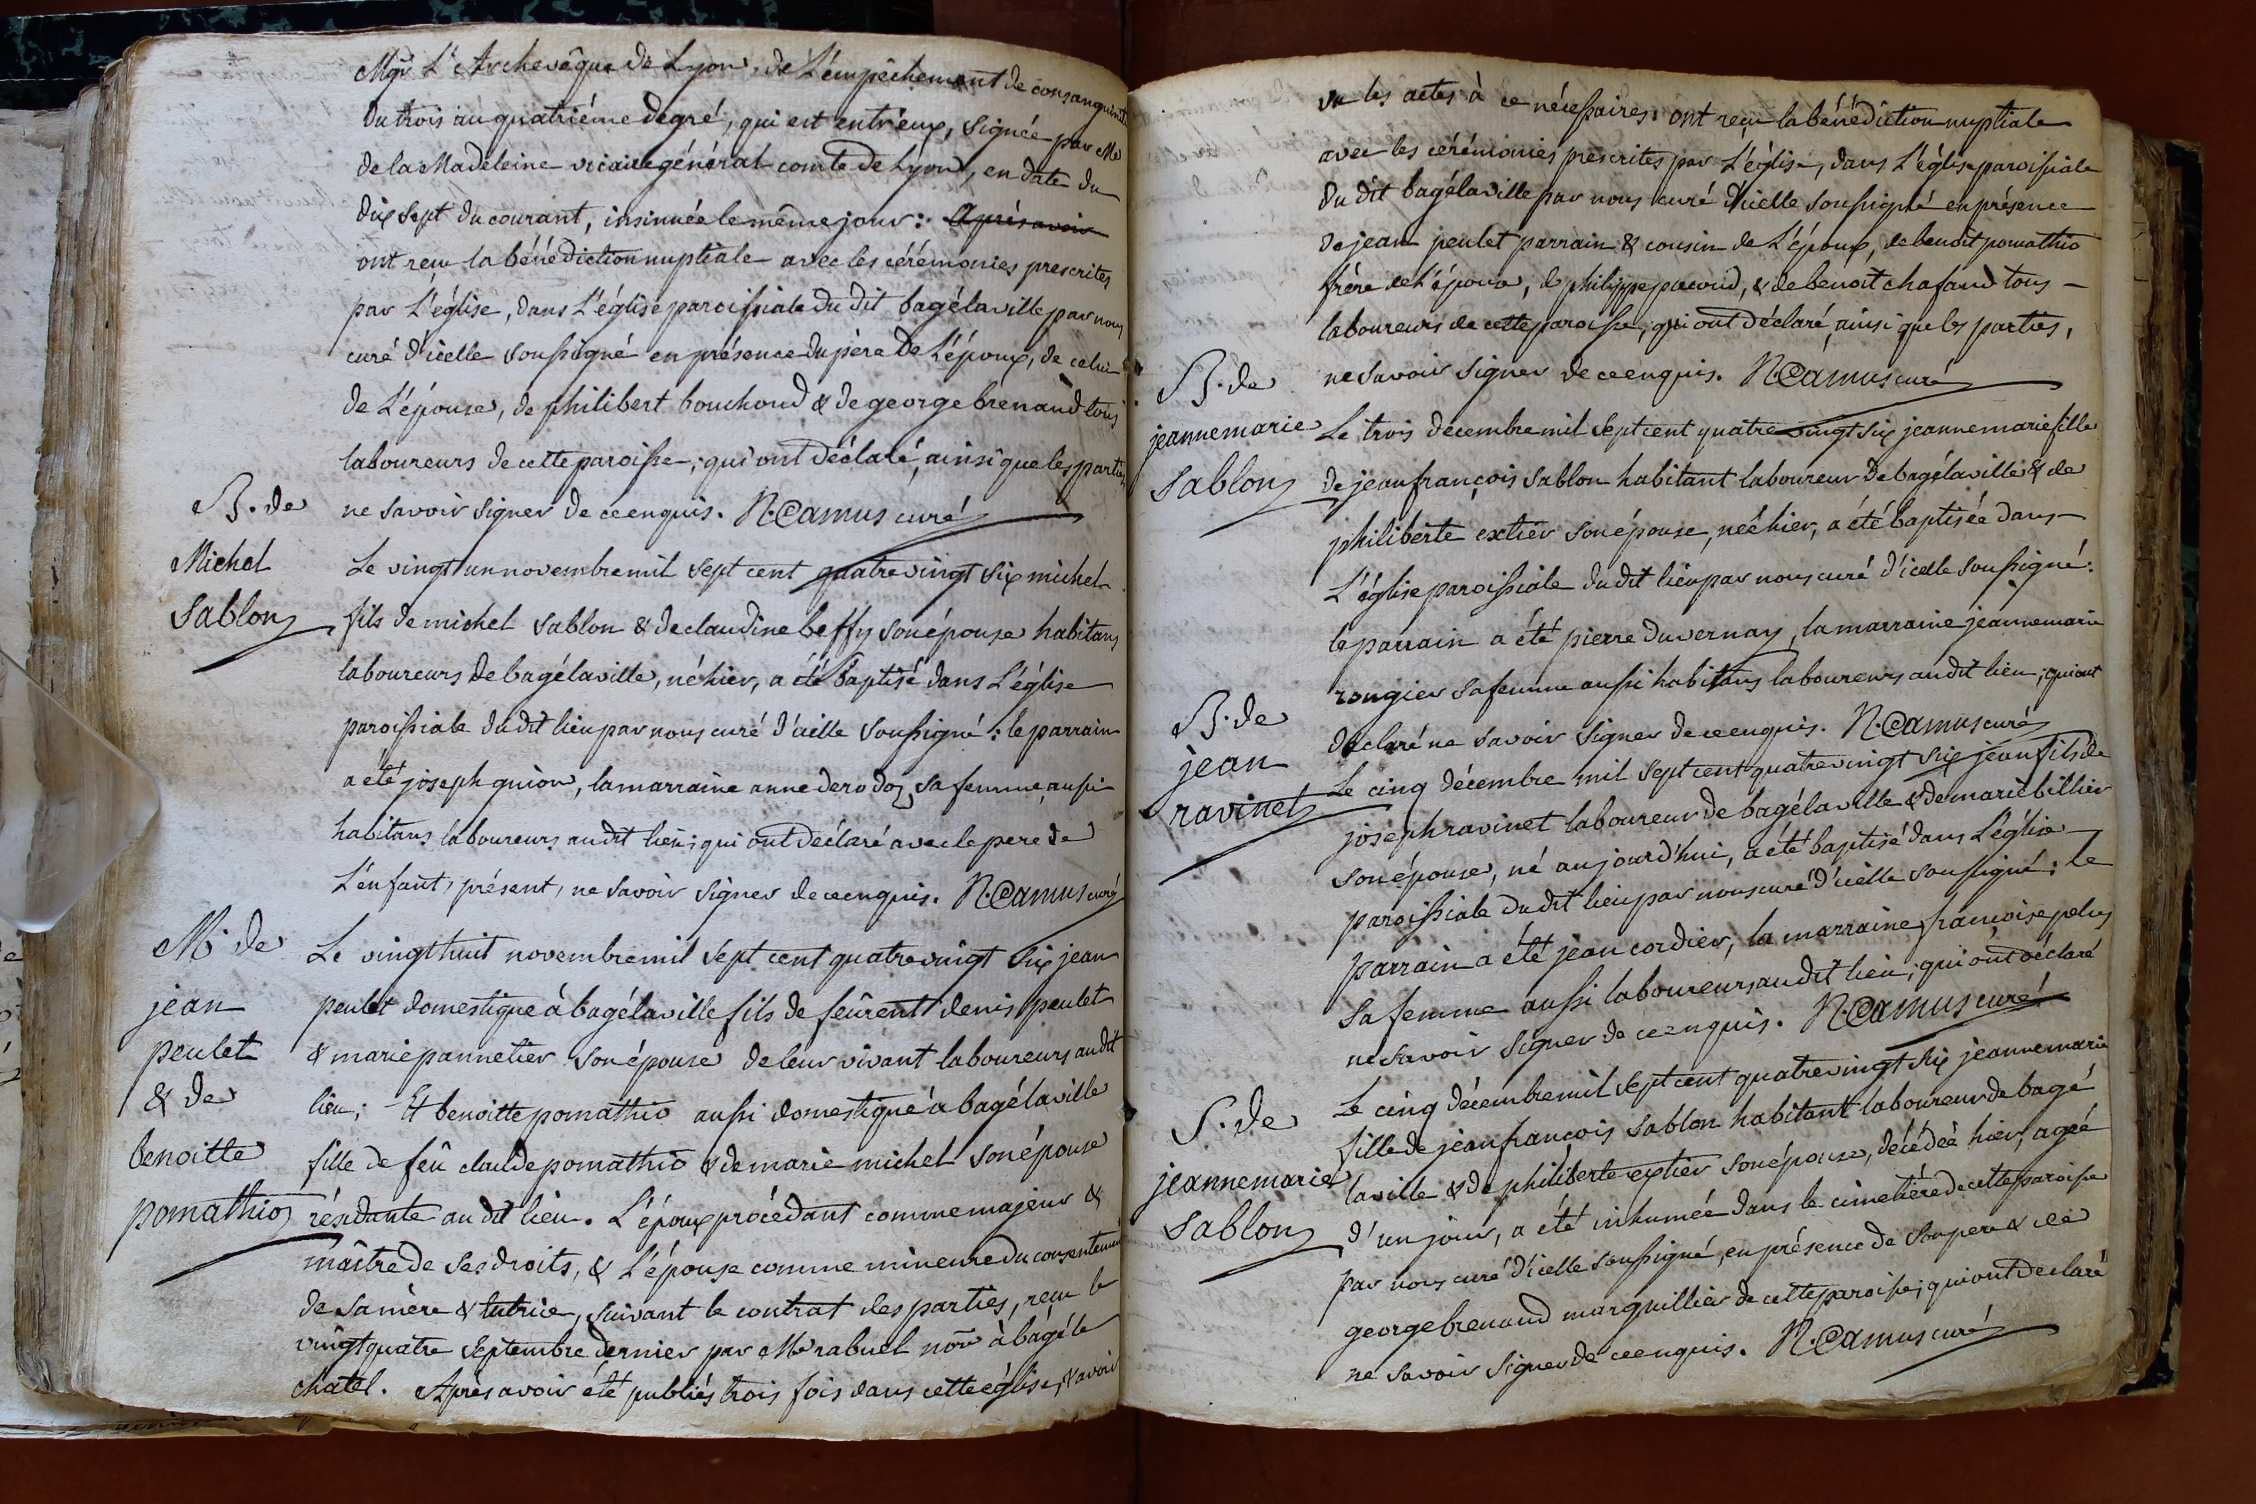 Mgr L'Archevêque de Lyon, de L'empêchement de consanguinité
du trois au quatriéme degré, qui est entr'eux, signée par Mr
de la Madeleine vicaire général comte de Lyon, en date du
dix sept du courant, insinuée le même jour: Après avoir
ont reçu la bénédiction nuptiale avec les cérémonies prescrites
par L'église, dans L'église paroissiale du dit bagélaville par nous
curé d'icelle soussigné en présence du père de L'époux, de celui
de L'épouse, de philibert bouchoud & de george brenaud tous
laboureurs de cette paroisse; qui ont déclaré, ainsi que les parties,
ne savoir signer de ce enquis. N. Camus curé
B. de
Michel
Sablon
Le vingt un novembre mil sept cent quatre vingt six michel
fils de michel Sablon & de claudine beffy son épouse habitans
laboureurs de bagélaville, né hier, a été baptisé dans L'église
paroissiale du dit lieu par nous curé d'icelle soussigné: le parrain
a été joseph guion, la marraine anne derodoz sa femme, aussi
habitans laboureurs au dit lieu; qui ont déclaré avec le pere de
L'enfant, présent, ne savoir signer de ce enquis. N. Camus curé
M. de
jean
peulet
& de
benoitte
pomathio
Le vingt huit novembre mil sept cent quatre vingt six jean
peulet domestique à bagélaville fils de feû rent denis peulet
& marie pannetier son épouse de leur vivant laboureurs au dit
lieu; Et benoitte pomathio aussi domestique à bagélaville
fille de feû claude pomathio & de marie michel son épouse
résidante au dit lieu. L'époux procédant comme majeur &
maître de ses droits, & L'épouse comme mineure du consentement
de sa mère & tutrice, suivant le contrat des parties, reçu le
vingt quatre septembre dernier par Me rabuel nore à bagé le
chatel. Après avoir été publiés trois fois dans cette église, & avoir
vu les actes à ce nécessaires. ont reçu la bénédiction nuptiale
avec les cérémonies prescrites par L'église, dans L'église paroissiale
du dit bagélaville par nous curé d'icelle soussigné en présence
de jean peulet parrain & cousin de L'époux, de benoit pomathio
frère de L'épouse, de philippe pacoud, & de benoit chafaud tous
laboureurs de cette paroisse; qui ont déclaré, ainsi que les parties,
ne savoir signer de ce enquis. N. Camus curé
B. de
jeanne marie
Sablon
Le trois decembre mil sept cent quatre vingt six jeanne marie fille
de jean françois Sablon habitant laboureur de bagélaville & de
philiberte extier son épouse, née hier, a été baptisée dans
L'église paroissiale du dit lieu par nous curé d'icelle soussigné:
le parrain a été pierre duvernay, la marraine jeanne marie
rongier sa femme aussi habitans laboureurs au dit lieu; qui ont
déclaré ne savoir signer de ce enquis. N. Camus curé
B. de
jean
ravinet
Le cinq décembre mil sept cent quatre vingt six jean fils de
joseph ravinet laboureur de bagélaville & de marie billier
son épouse, né aujourd'hui, a été baptisé dans L'église
paroissiale du dit lieu par nous curé d'icelle soussigné: le
parrain a été jean cordier, la marraine françoise pelus
sa femme aussi laboureurs au dit lieu; qui ont déclaré
ne savoir signer de ce enquis. N. Camus curé
S. de
jeanne marie
Sablon
Le cinq décembre mil sept cent quatre vingt six jeanne marie
fille de jean françois Sablon habitant laboureur de bagé
laville & de philiberte extier son épouse, décédée hier, agée
d'un jour, a été inhumée dans le cimetière de cette paroisse
par nous curé d'icelle soussigné, en présence de son pere & de
george brenaud marguillier de cette paroisse; qui ont declaré
ne savoir signer de ce enquis. N. Camus curé